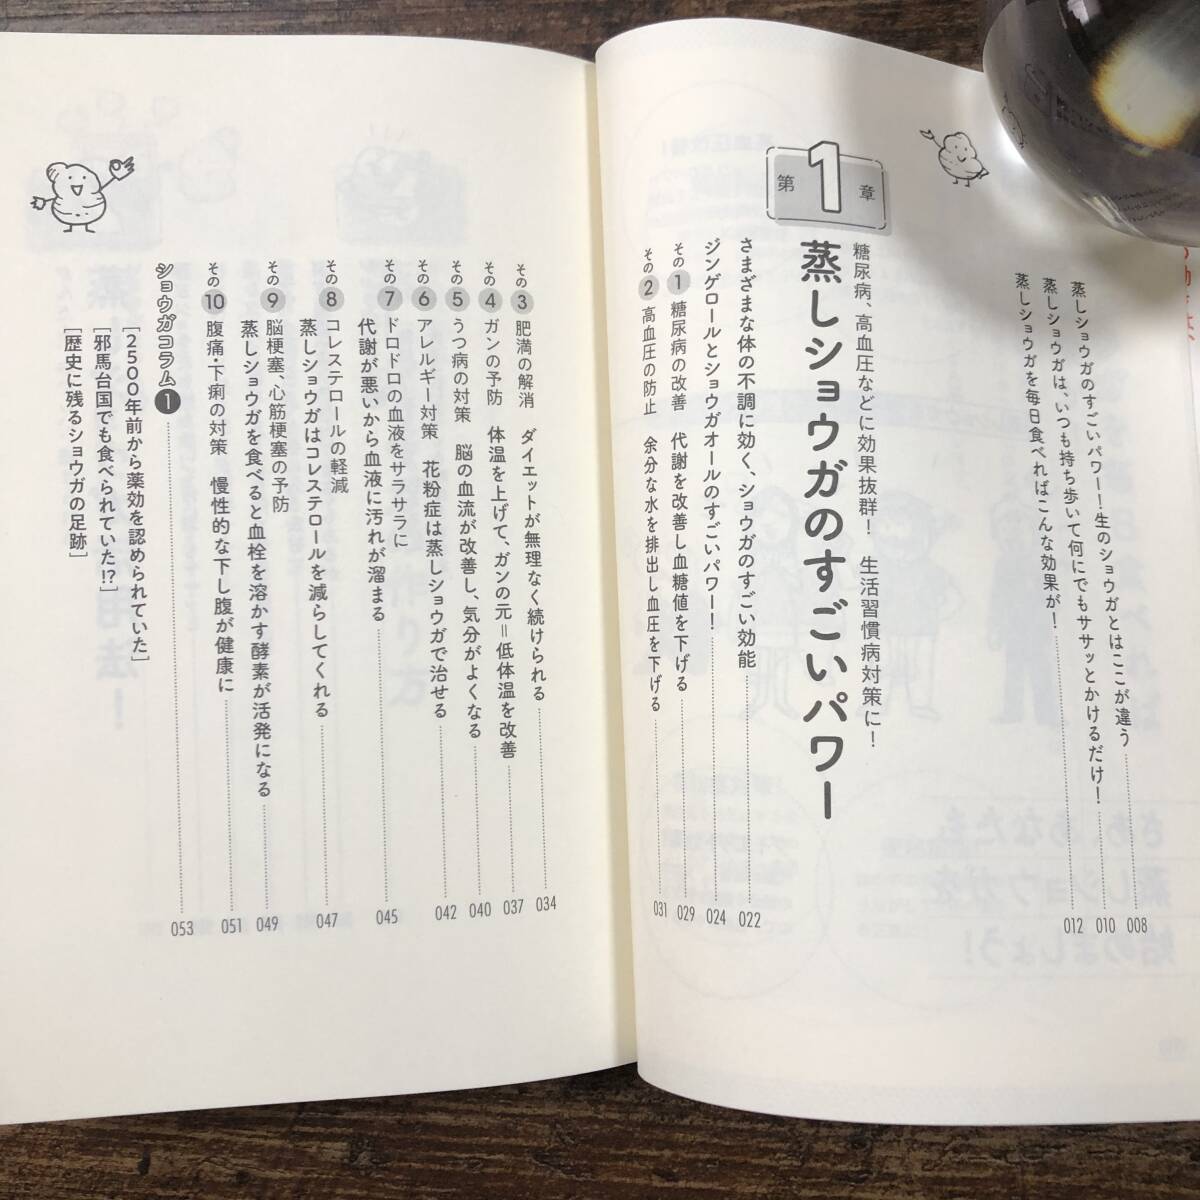 蒸しショウガのすごいパワー！生のショウガとはここが違う 008
蒸しショウガは、いつも持ち歩いて何にでもササッとかけるだけ！ 010
蒸しショウガを毎日食べればこんな効果が！ 012
第1章
糖尿病、高血圧などに効果抜群！　生活習慣病対策に！
蒸しショウガのすごいパワー
さまざまな体の不調に効く、ショウガのすごい効能 022
ジンゲロールとショウガオールのすごいパワー！ 024
その1　糖尿病の改善　代謝を改善し血糖値を下げる 029
その2　高血圧の防止　余分な水を排出し血圧を下げる 031
その3　肥満の解消　ダイエットが無理なく続けられる 034
その4　ガンの予防　体温を上げて、ガンの元＝低体温を改善 037
その5　うつ病の対策　脳の血流が改善し、気分がよくなる 040
その6　アレルギー対策　花粉症は蒸しショウガで治せる 042
その7　ドロドロの血液をサラサラに
代謝が悪いから血液に汚れが溜まる 045
その8　コレステロールの軽減
蒸しショウガはコレステロールを減らしてくれる 047
その9　脳梗塞、心筋梗塞の予防
蒸しショウガを食べると血栓を溶かす酵素が活発になる 049
その10　腹痛・下痢の対策　慢性的な下し腹が健康に 051
ショウガコラム1 053
［2500年前から薬効を認められていた］
［邪馬台国でも食べられていた!?］
［歴史に残るショウガの足跡］
さあ、あなたも
蒸しショウガを
始めましょう！